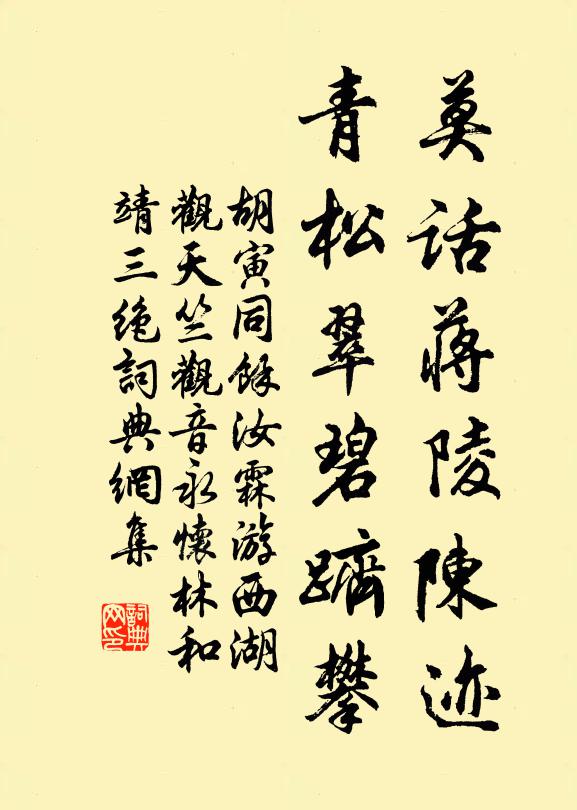 莫话蒋陵陳迹
青松翠碧躋攀
胡寅同餘汝霖游西湖
觀天竺觀音永懷林和
靖三绝詞典網集
詞典
网印